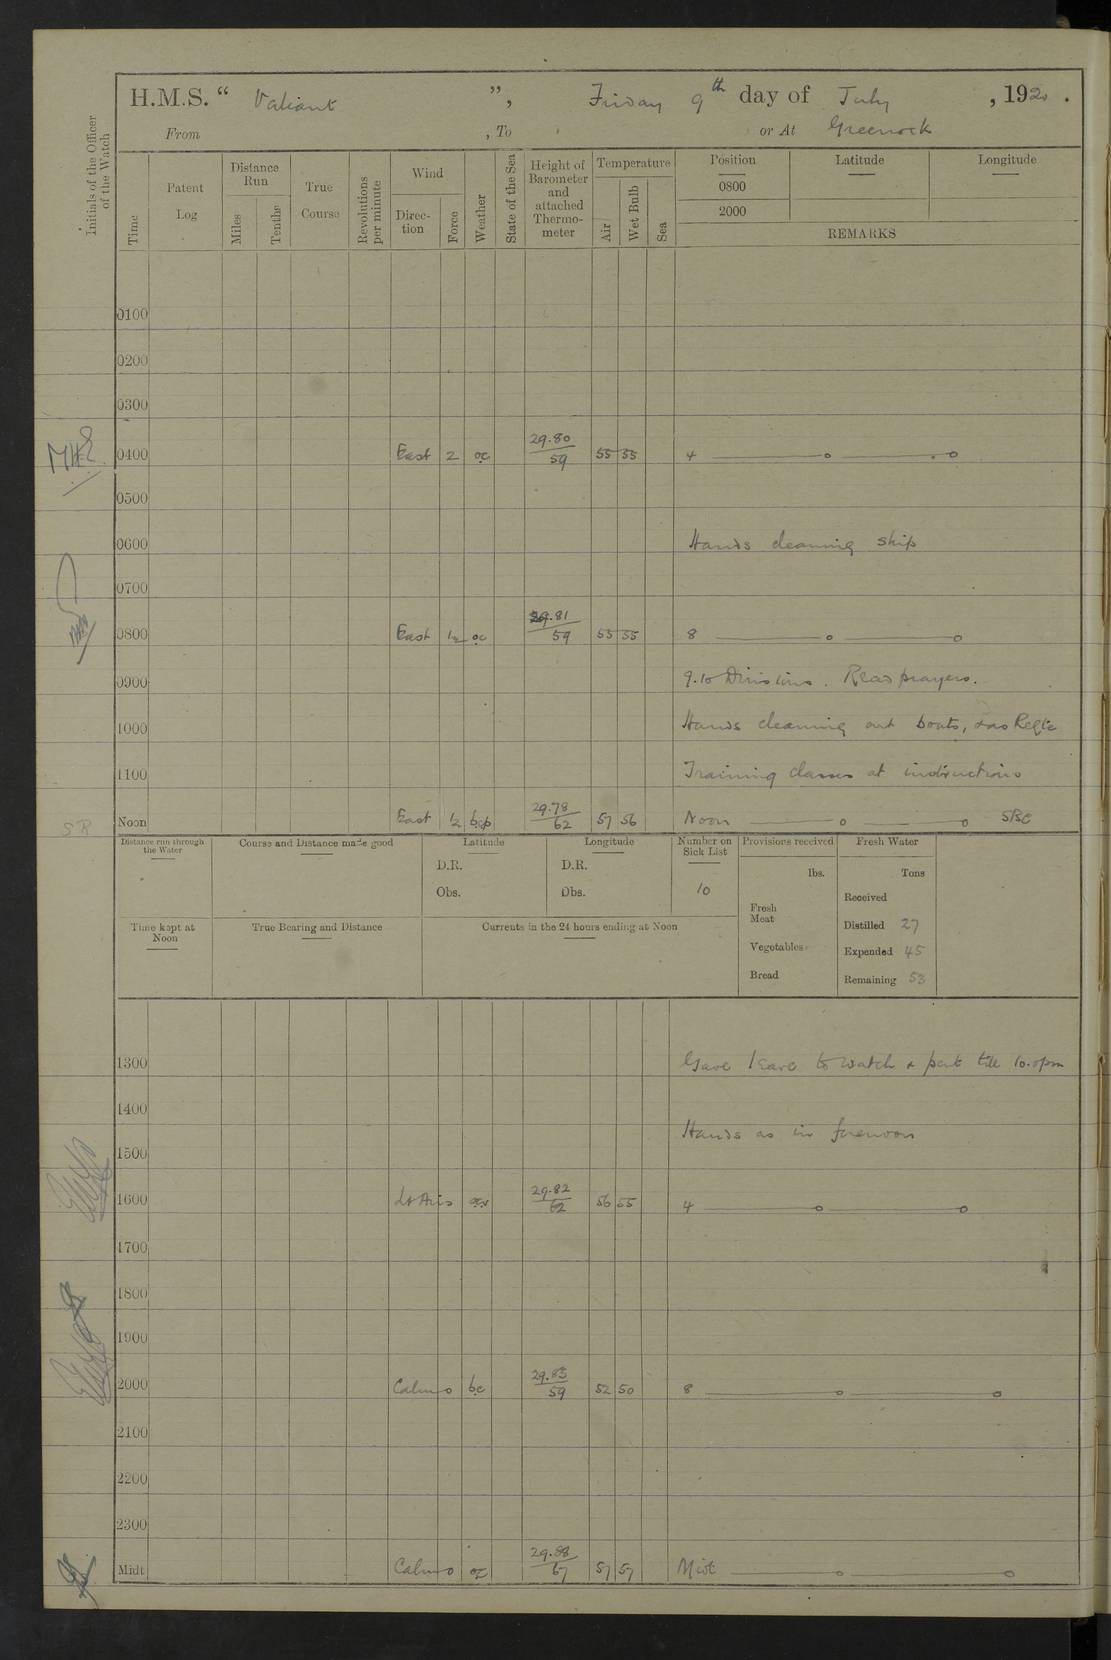 H.M.S. “ Valiant ”, Friday 9th day of July , 1920 .
From , To or At Greenock
Initials of the Officer of the Watch
Time Patent Log Distance Run Miles Tenths True Course Revolutions per minute Wind Direc- tion Force Weather State of the Sea Height of Barometer and attached Thermo- meter Temperature Air Wet Bulb Sea Position Latitude Longitude
0800
2000
REMARKS
0100
0200
0300
0400 East 2 oc 29.80 59 55 55 4
0500
0600 Hands cleaning ship
0700
0800 East 1/2 oc 29.81 59 55 55 8
0900 9.10 Divisions. Read prayers.
1000 Hands cleaning out boats, & as Reqte
1100 Training classes at instructions
SR Noon East 1/2 bcp 29.78 62 57 56 Noon
Distance run through the Water Course and Distance made good Latitude Longitude Number on Sick List Provisions received Fresh Water
D.R. D.R. lbs. Tons
Obs. Obs. 10 Received
Fresh Meat Distilled 27
Time kept at Noon True Bearing and Distance Currents in the 24 hours ending at Noon
Vegetables Expended 45
Bread Remaining 53
1300 Gave leave to watch & part till 10.0pm
1400 Hands as in forenoon
1500
1600 Lt Airs 29.82 62 56 55 4
1700
1800
1900
2000 Calm o bc 29.83 59 52 50 8
2100
2200
2300
Midt Calm o oc 29.88 67 57 57 Midt